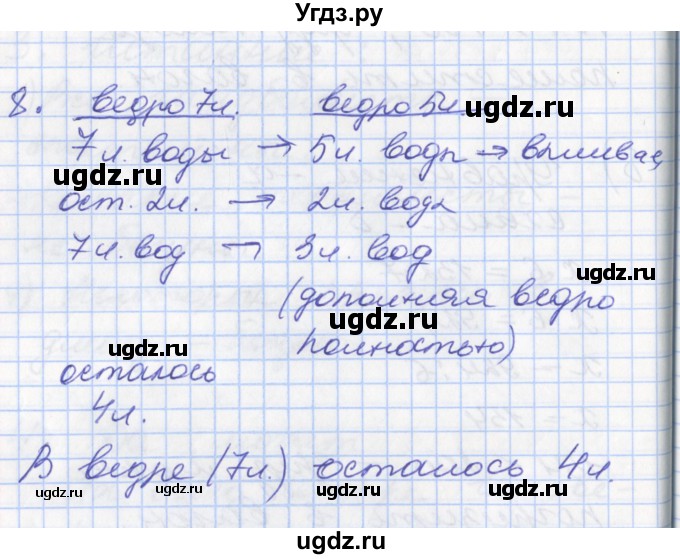 Угдз.ру
8. ведро 7л. ведро 5л.
ugdz.ru
7л. воды → 5л. воды → выливаем
ugdz.ru
ост. 2л. → 2л. воды
7л. вод → 3л. вод
ugdz.ru
(дополняя ведро
ugdz.ru
полностью)
ugdz.ru
осталось
4л.
В ведре (7л.) осталось 4л.
ugdz.ru ugdz.ru
ugdz.ru